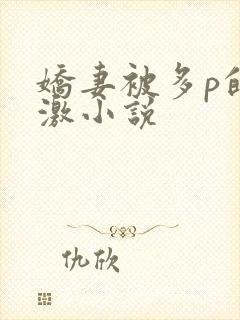 嬌妻被多p的
激小説
仇欣